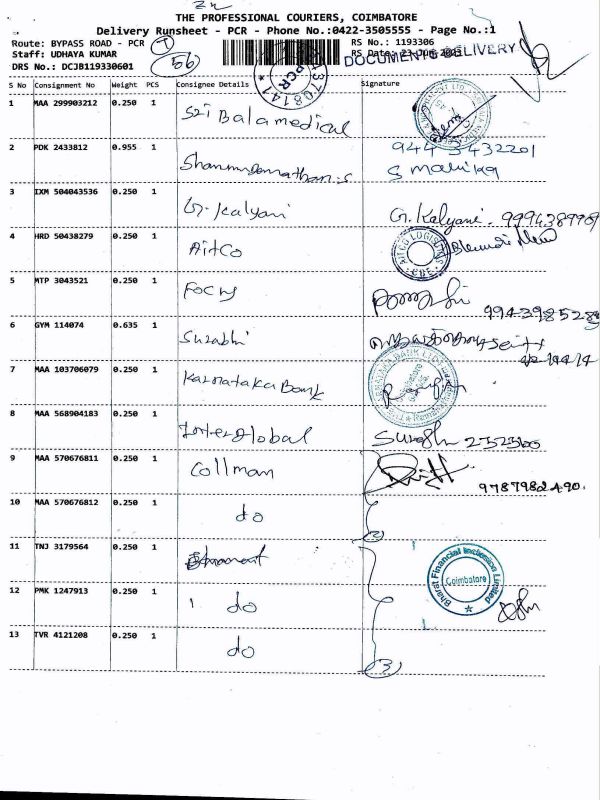 THE PROFESSIONAL COURIERS, COIMBATORE
Delivery Runsheet - PCR - Phone No.:0422-3505555 - Page No.:1
Route: BYPASS ROAD - PCR 1
RS No.: 1193306
DOCUMENTS DELIVERY
Staff: UDHAYA KUMAR
56
RS Date:
DRS No.: DCJB119330601
S No Consignment No Weight PCS Consignee Details Signature
1 MAA 299903212 0.250 1 Sri Balamedical
2 PDK 2433812 0.955 1 Shanmuganathan.s
3 IXM 504043536 0.250 1 G. Kalyani G. Kalyani.
4 HRD 50438279 0.250 1 AitCo
AITCO LOGISTICS
CBE
5 MTP 3043521 0.250 1 Focus
6 GYM 114074 0.635 1 Surabhi
7 MAA 103706079 0.250 1 Karnataka Bank
8 MAA 568904183 0.250 1 Interglobal
9 MAA 570676811 0.250 1 Collman
9787982490.
10 MAA 570676812 0.250 1 do
2
11 TNJ 3179564 0.250 1
Bharat Financial Inclusion Limited
Coimbatore
12 PMK 1247913 0.250 1 do
13 TVR 4121208 0.250 1 do
3